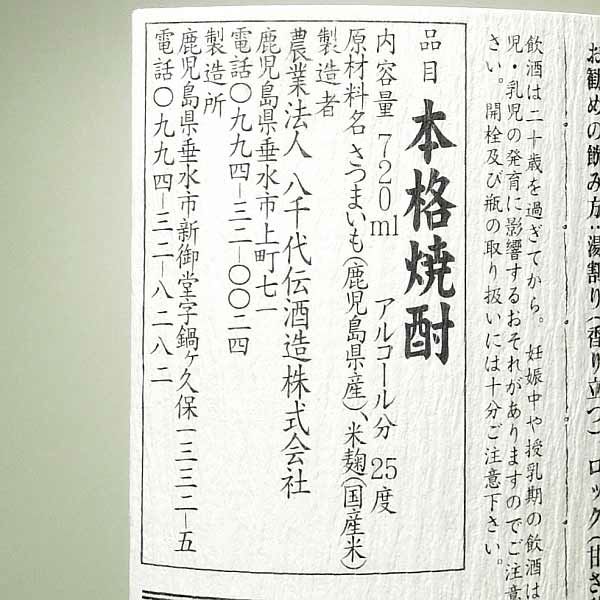 お勧めの飲み方:湯割り(香り立つ) ロック(甘さ
飲酒は二十歳を過ぎてから。 妊娠中や授乳期の飲酒は
児・乳児の発育に影響するおそれがありますのでご注意
さい。 開栓及び瓶の取り扱いには十分ご注意下さい。
品目 本格焼酎
内容量 720ml アルコール分 25度
原材料名 さつまいも(鹿児島県産)、米麹(国産米)
製造者
農業法人 八千代伝酒造株式会社
鹿児島県垂水市上町七一
電話〇九九四ー三二ー〇〇二四
製造所
鹿児島県垂水市新御堂字鍋ヶ久保一三三二ー五
電話〇九九四ー三二ー八二八二